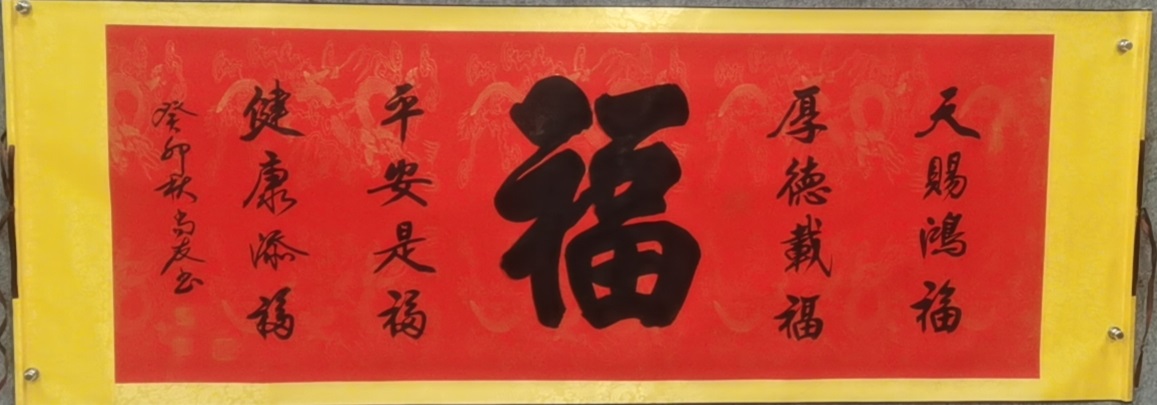 天賜鴻福
厚德載福
福
平安是福
健康添福
癸卯秋尚友书